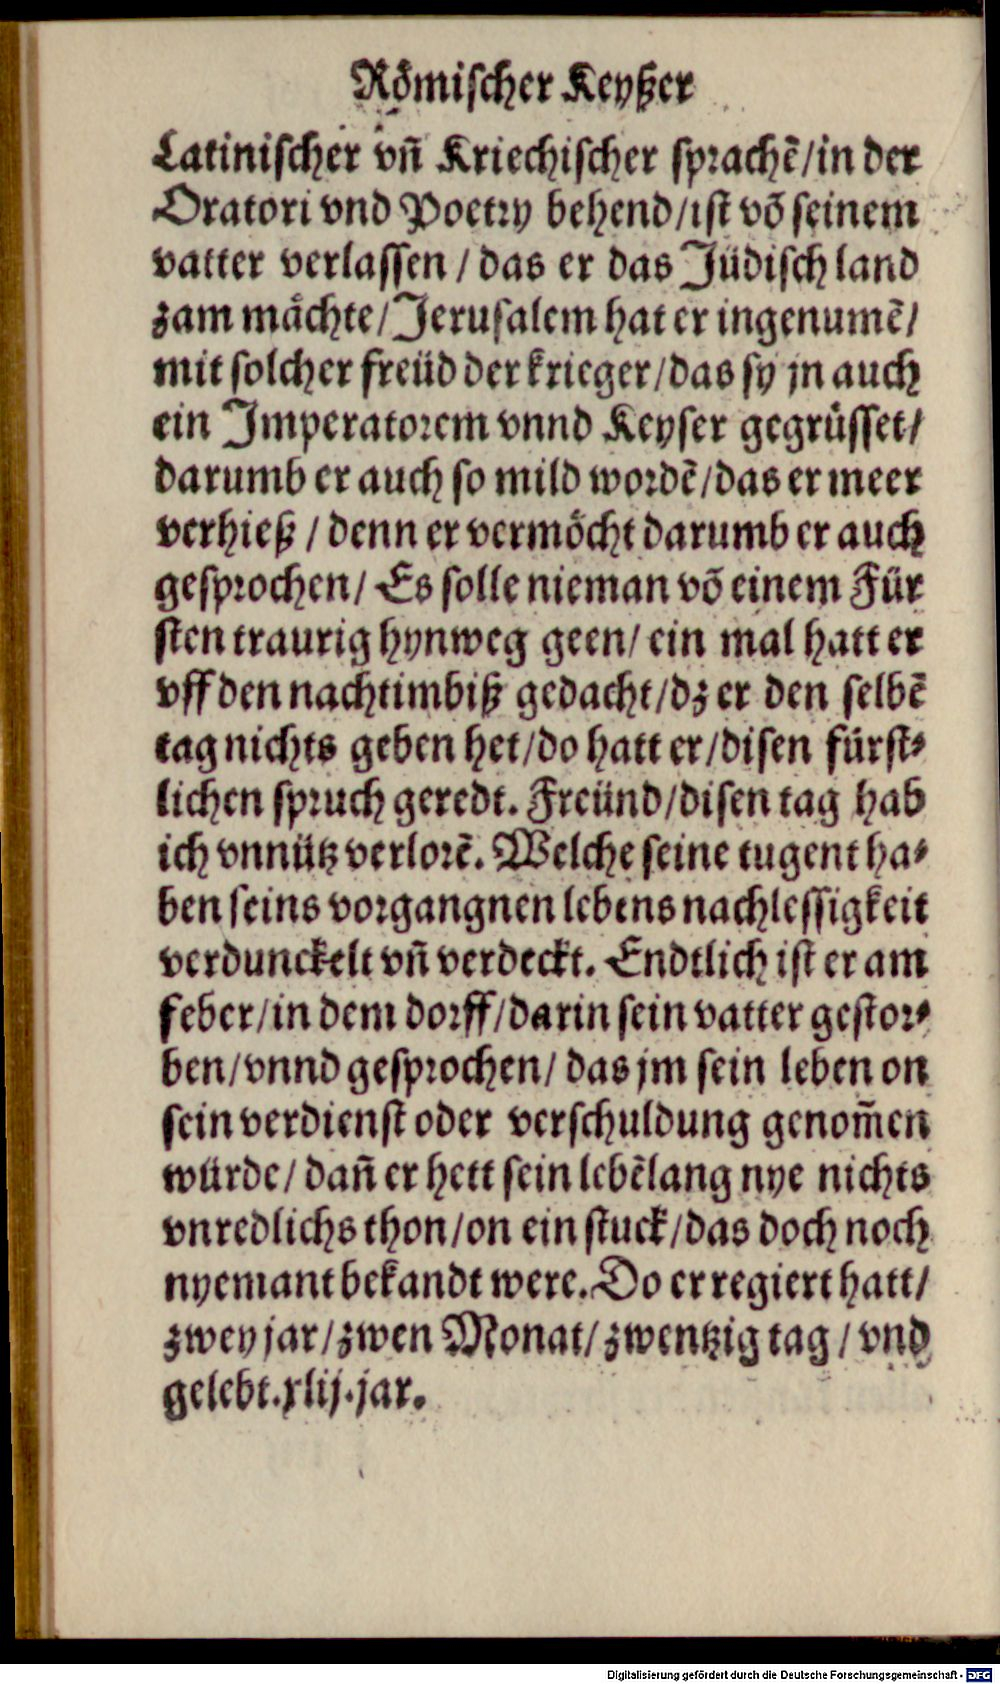 Roͤmischer Keyßer
Latinischer vñ Kriechischer sprachẽ/in der
Oratori vnd Poetry behend/ist võ seinem
vatter verlassen / das er das Jüdisch land
zam maͤchte/Jerusalem hat er ingenumẽ/
mit solcher freüd der krieger/das sy jn auch
ein Imperatorem vnnd Keyser gegrüsset/
darumb er auch so mild wordẽ/das er meer
verhieß / denn er vermoͤcht darumb er auch
gesprochen/ Es solle nieman võ einem Für
sten traurig hynweg geen/ ein mal hatt er
vff den nachtimbiß gedacht/dz er den selbẽ
tag nichts geben het/do hatt er/disen fürst⸗
lichen spruch geredt. Freünd/disen tag hab
ich vnnütz verlorẽ. Welche seine tugent ha⸗
ben seins vorgangnen lebens nachlessigkeit
verdunckelt vñ verdeckt. Endtlich ist er am
feber/in dem dorff/darin sein vatter gestor⸗
ben/vnnd gesprochen/ das jm sein leben on
sein verdienst oder verschuldung genom̃en
würde/ dañ er hett sein lebẽlang nye nichts
vnredlichs thon/on ein stuck/das doch noch
nyemant bekandt were. Do er regiert hatt/
zwey jar/zwen Monat/zwentzig tag / vnd
gelebt.xlij.jar.
Digitalisierung gefördert durch die Deutsche Forschungsgemeinschaft - DFG